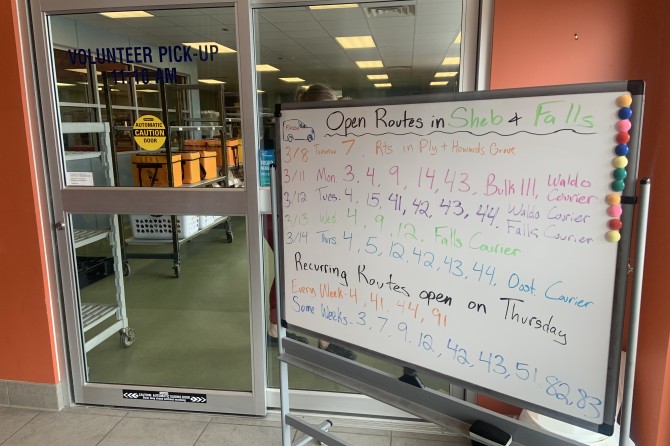 VOLUNTEER PICK-UP
11:10 AM
AUTOMATIC
CAUTION
DOOR
Open Routes in Sheb & Falls
3/8 Tomorrow 7 Rts in Ply + Howards Grove
3/11 Mon. 3, 4, 9, 14, 43, Bulk 111, Waldo Courier
3/12 Tues. 4, 15, 41, 42, 43, 44, Waldo Courier Falls Courier
3/13 Wed 4, 9, 12, Falls Courier
3/14 Thurs 4, 5, 12, 42, 43, 44, Oost. Courier
Recurring Routes open on Thursday
Every Week - 4, 41, 44, 91
Some Weeks - 3, 7, 9, 12, 42, 43, 51, 82, 83
CAUTION AUTOMATIC SLIDING DOOR